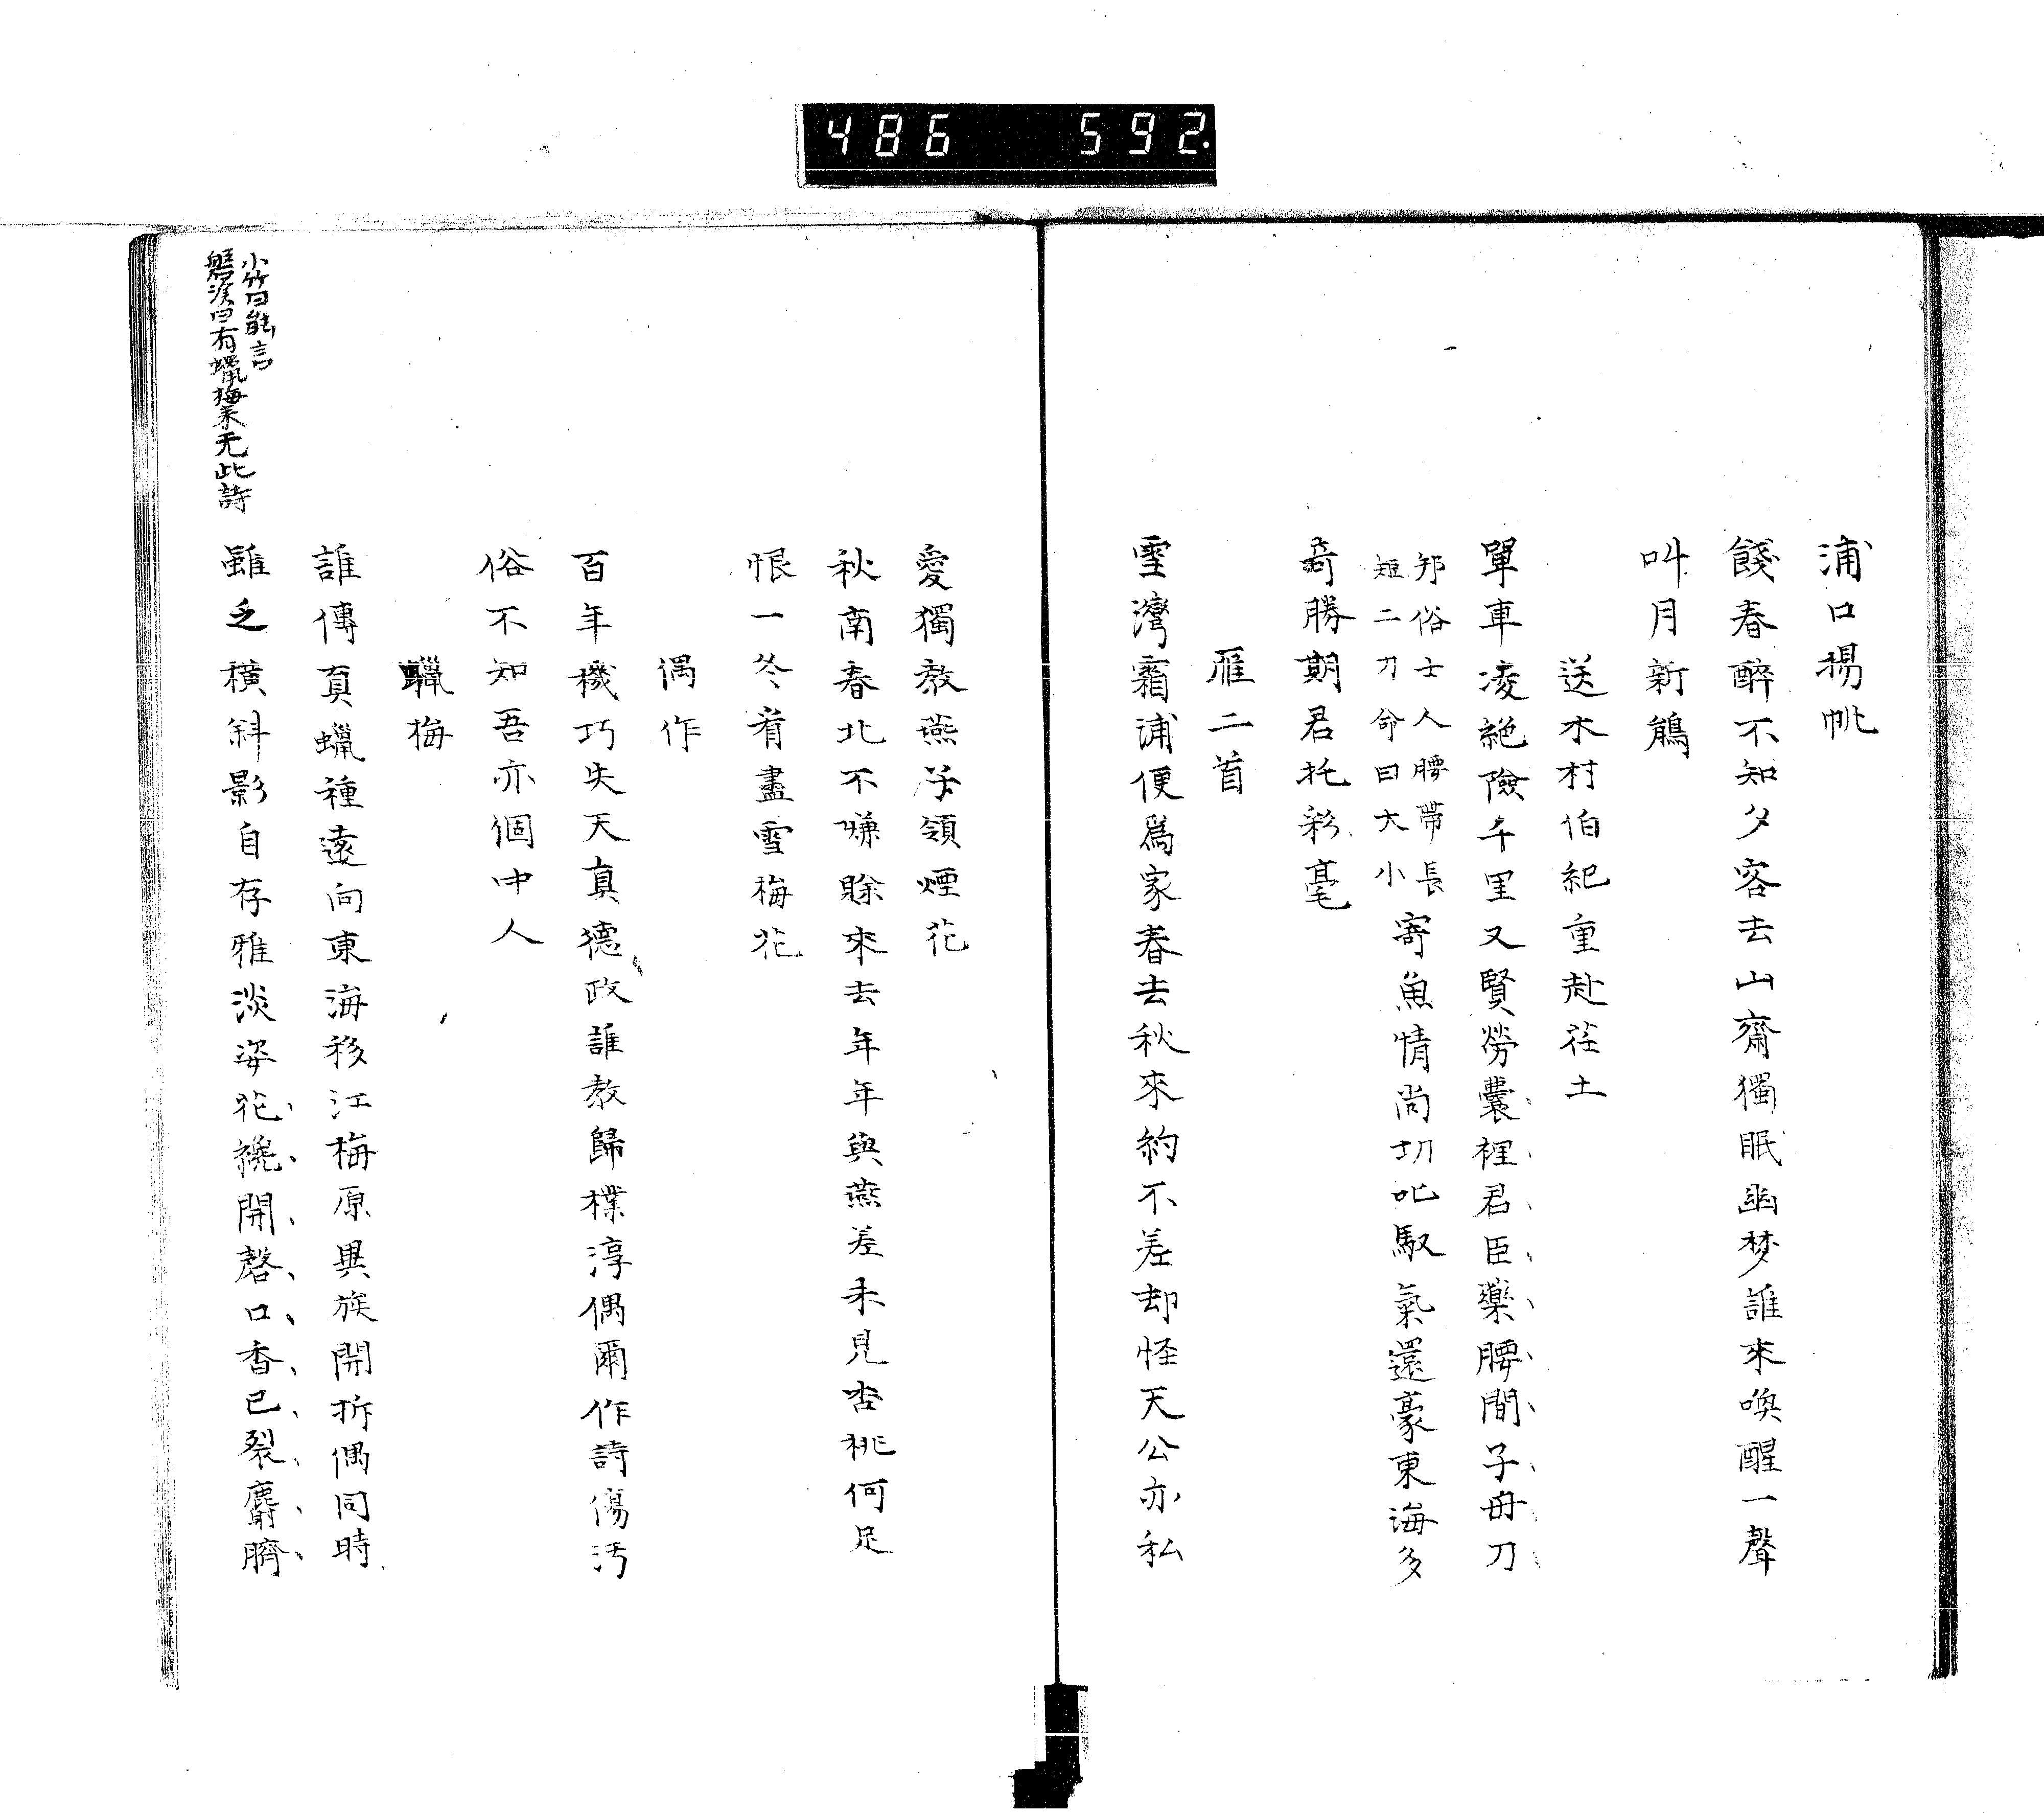 486 592.
浦口楊帆
餞春醉不知夕客去山齋獨眠幽梦誰來喚醒一聲
叫月新鵑
送木村伯紀重赴荏土
單車凌絕險千里又賢勞囊裡君臣藥腰間子母刀
邦俗士人腰帶長
短二刀命曰大小
寄魚情尚切叱馭氣還豪東海多
奇勝期君托彩毫
雁二首
雪灣霜浦便爲家春去秋來約不差却怪天公亦私
愛獨教燕子領煙花
秋南春北不嫌賒來去年年與燕差未見杏桃何足
恨一冬看盡雪梅花
偶作
百年機巧失天真德政誰教歸樸淳偶爾作詩傷汚
俗不知吾亦個中人
蠟梅
誰傳真蠟種遠向東海移江梅原異族開拆偶同時
雖乏橫斜影自存雅淡姿花纔開磬口香已裂麝臍
小竹曰能言
磐溪曰有蠟梅來无此詩